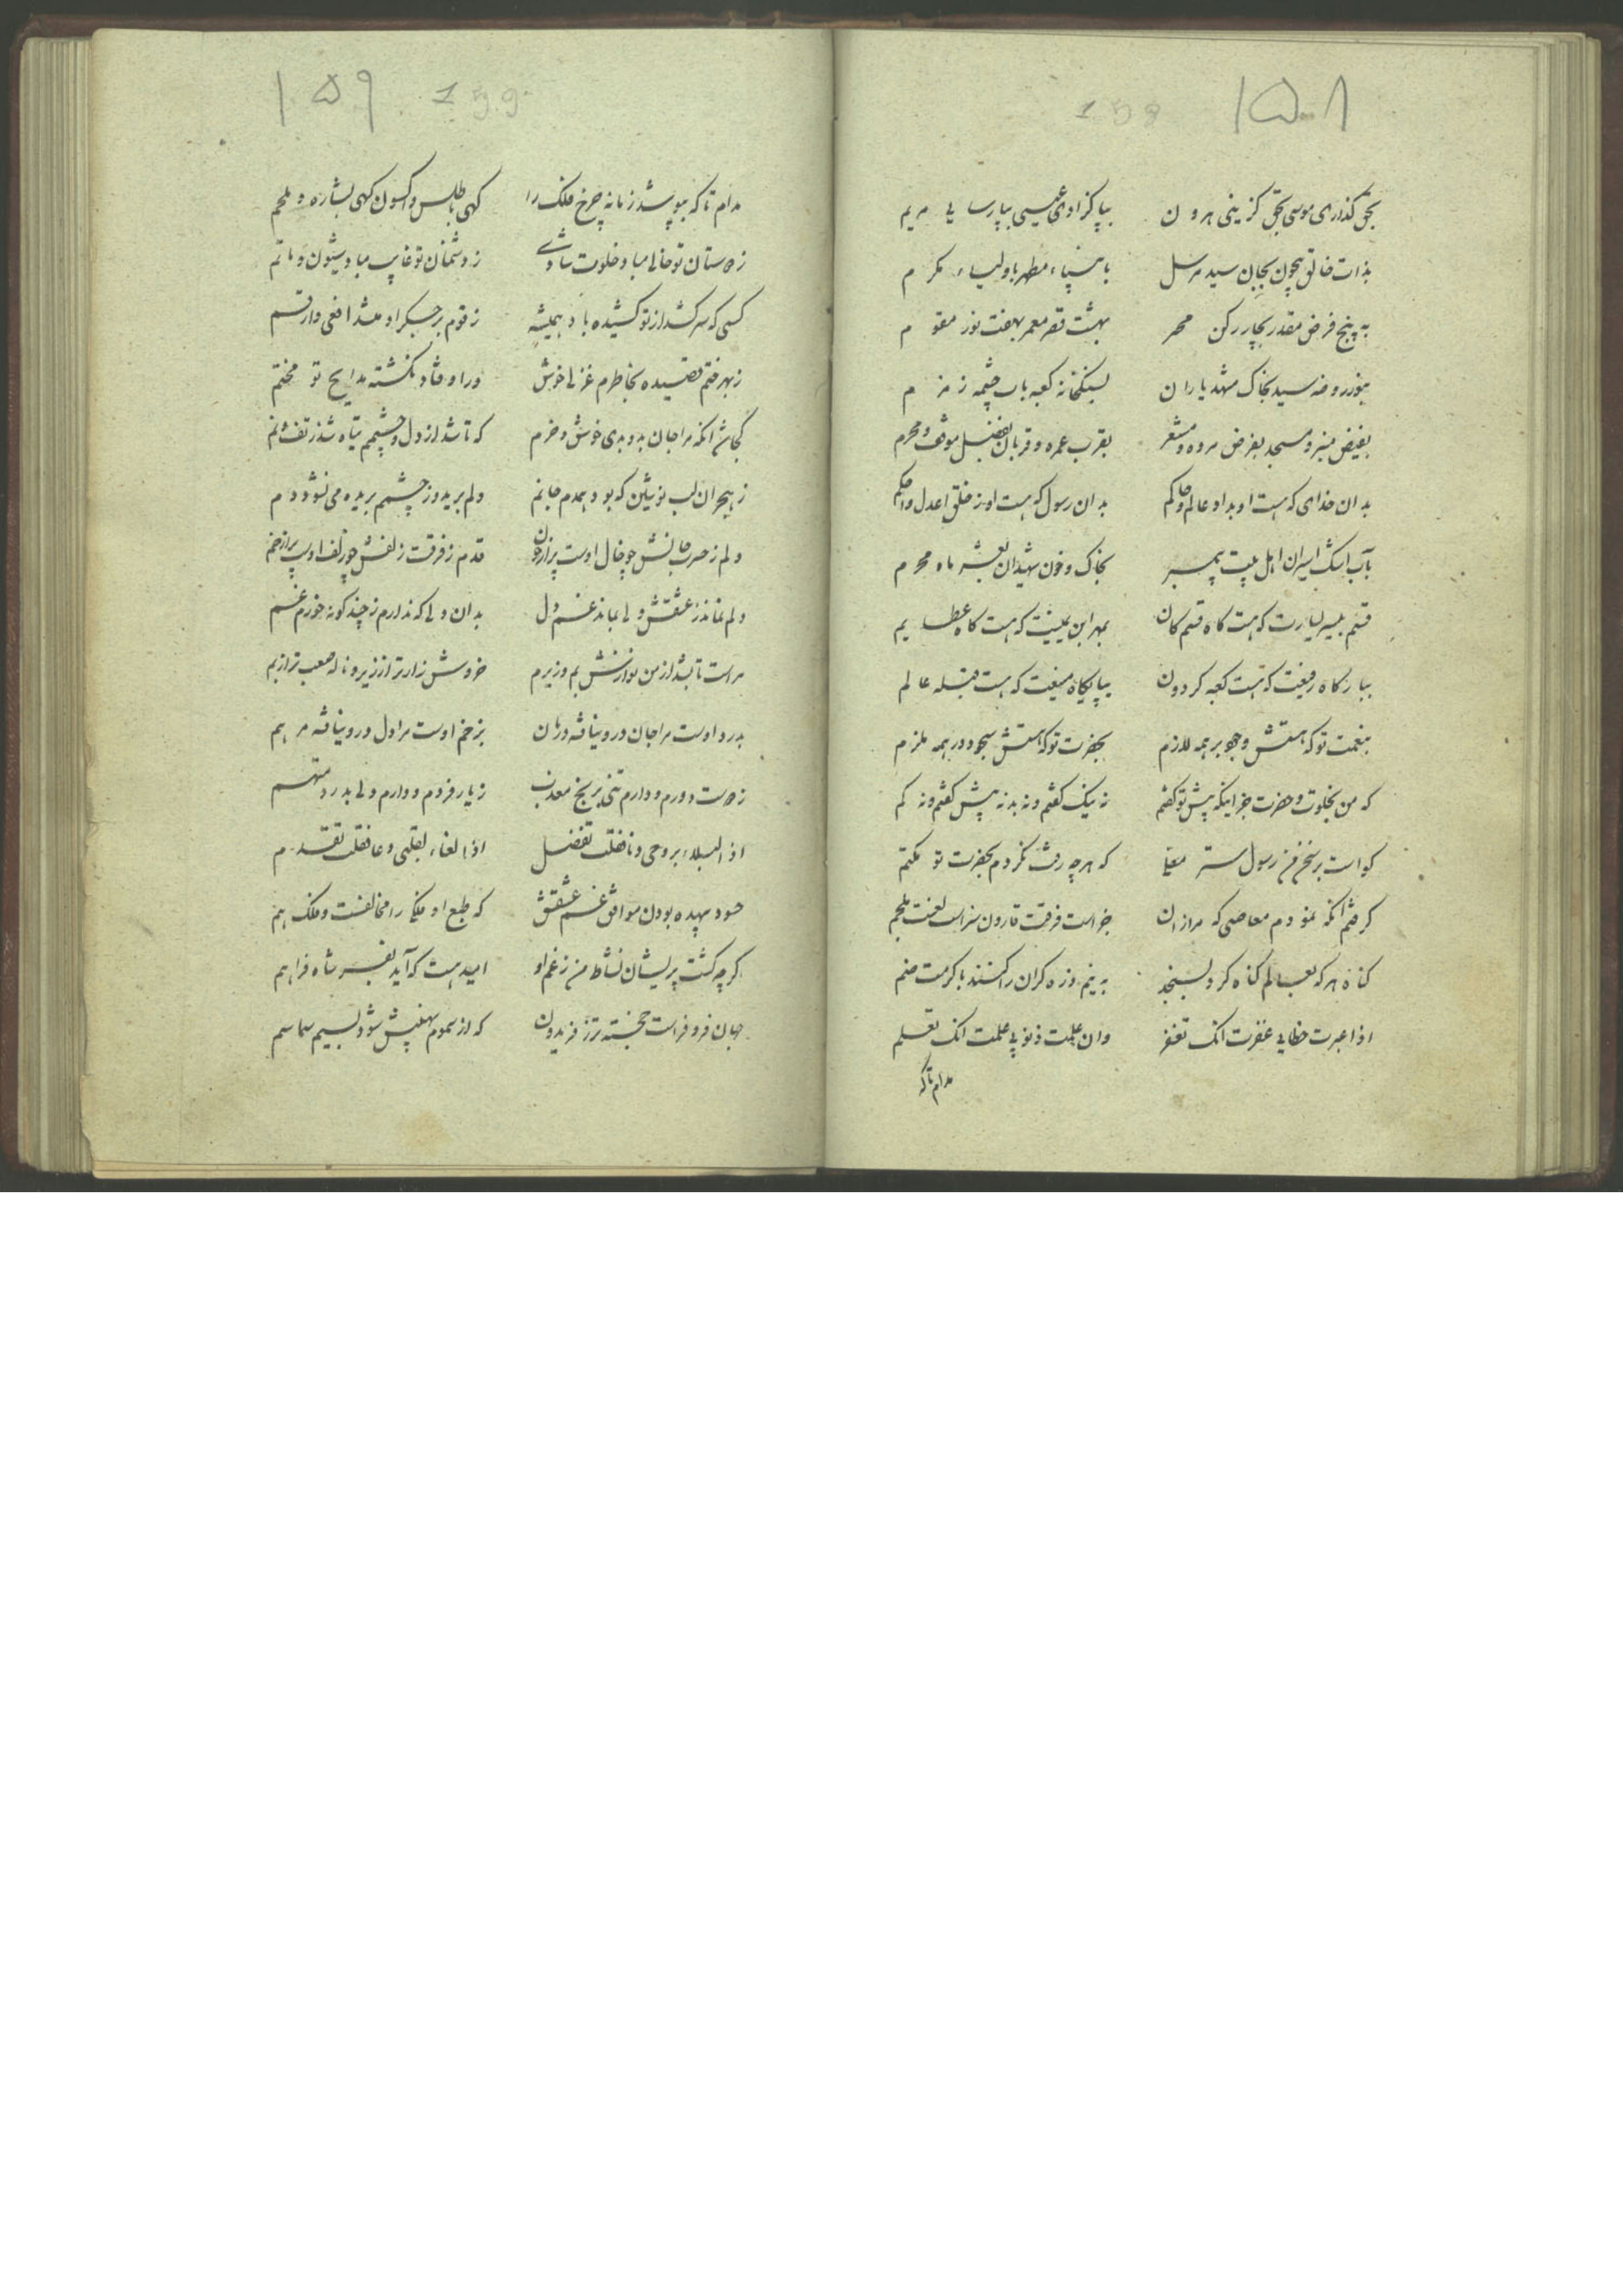 ۱۵۸ 158
بحق گذاری موسی بحق گزینی هرون بپاکزادی عیسی بپارسایی مریم
بذات خالق بیچون بجان سید مرسل بانبیاء مطهر باولیاء مکرم
به پنج فرض مقدر بچار رکن بهشت قصر معمر بهفت نور مقوم
بنور روضه سید بخاک مشهد یاران بسنکخانه کعبه باب چشمه زمزم
بفیض منبر و مسجد بفرض مروه و مشعر بقرب عمره و قربان بفضل موقف و محرم
بدان خدای که هست او بداد عالم و حاکم بدان رسول که هست او ز خلق اعدل و احکم
بآب اشک اسیران اهل بیت پیمبر بخاک و خون شهیدان بعشر ماه محرم
قسم بیسر یسارت که هست کاه قسم کان بهر این یمینت که هست کاه عطا یم
ببارکاه رفیعت که هست کعبه کردون بپایکاه منیعت که هست قبله عالم
بنعمت تو که هستش وجوب بر همه لازم بحضرت تو که هستش سجود در همه ملزم
که من بخلوت و حضرت جز اینکه پیش تو کفتم نه نیک کفتم و نه بد نه پیش کفتم و نه کم
کواست بر سخن من رسول که هرچه رفت نکردم بحضرت تو مکتم
کرفتم آنکه نمودم معاصی که مرا زان جزاست فرقت قارون سزاست لعنت ملجم
کناه هر که بعالم کناه کرد بسنجد به نیم ذره کران را کنند با کرمت ضم
اذا عبرت خطایی غفرت انک تغفر وان علمت ذنوبی علمت انک تعلم
مدام تا که
۱۵۹ 159
مدام تا که بپوشد زمانه چرخ فلک را کهی باطلس و اکسون کهی بشاره و ملحم
ز دوستان تو خالی مباد خلوت شادی ز دشمنان تو غایب مباد شیون و ماتم
کسی که سر کشد از تو کشیده باد همیشه ز قوم بر جکر او مشد افعی و ارقم
ز بهر ختم قصیده بخاطرم غزلی خوش دراوفتاد نکشته مدایح تو مختم
کجاش آنکه مرا جان بدو بدی خوش و خرم که تا شد از دل و چشمم تباه شد ز تف و نم
ز هجر آن لب نوشین که بود همدم جانم دلم برید و ز چشمم بریده می نشود دم
دلم ز حسرت خالش چو خال اوست پر از خون قدم ز فرقت زلفش چو زلف اوست پر از خم
دلم نماند ز عشقش ولی بماند غم دل بدان دلی که ندارم ز چند کونه خورم غم
مراست تا بشد از من نوازش بم و زیرم خروش زارتر از زیر و ناله صعب تر از بم
بدرد اوست مرا جان درو نیافته درمان بزخم اوست مرا دل درو نیافته مرهم
ز دوست دورم و دارم تنی برنج معذب ز یار فردم و دارم دلی بدرد متهم
اذا البلاء بروحی دنا فقلت تفضل اذا لغناء بقلبی دعا فقلت تقدم
حسود بیهده بودن موافق غم عشقش که طبع او ملکا را مخالفست و ملک هم
کرچه کشت پریشان نشاط من ز غم او امید هست که آید بفر شاه فراهم
جهان فر و فراست خجسته تر ز فریدون که از سموم نهیبش شود نسیم سما سم